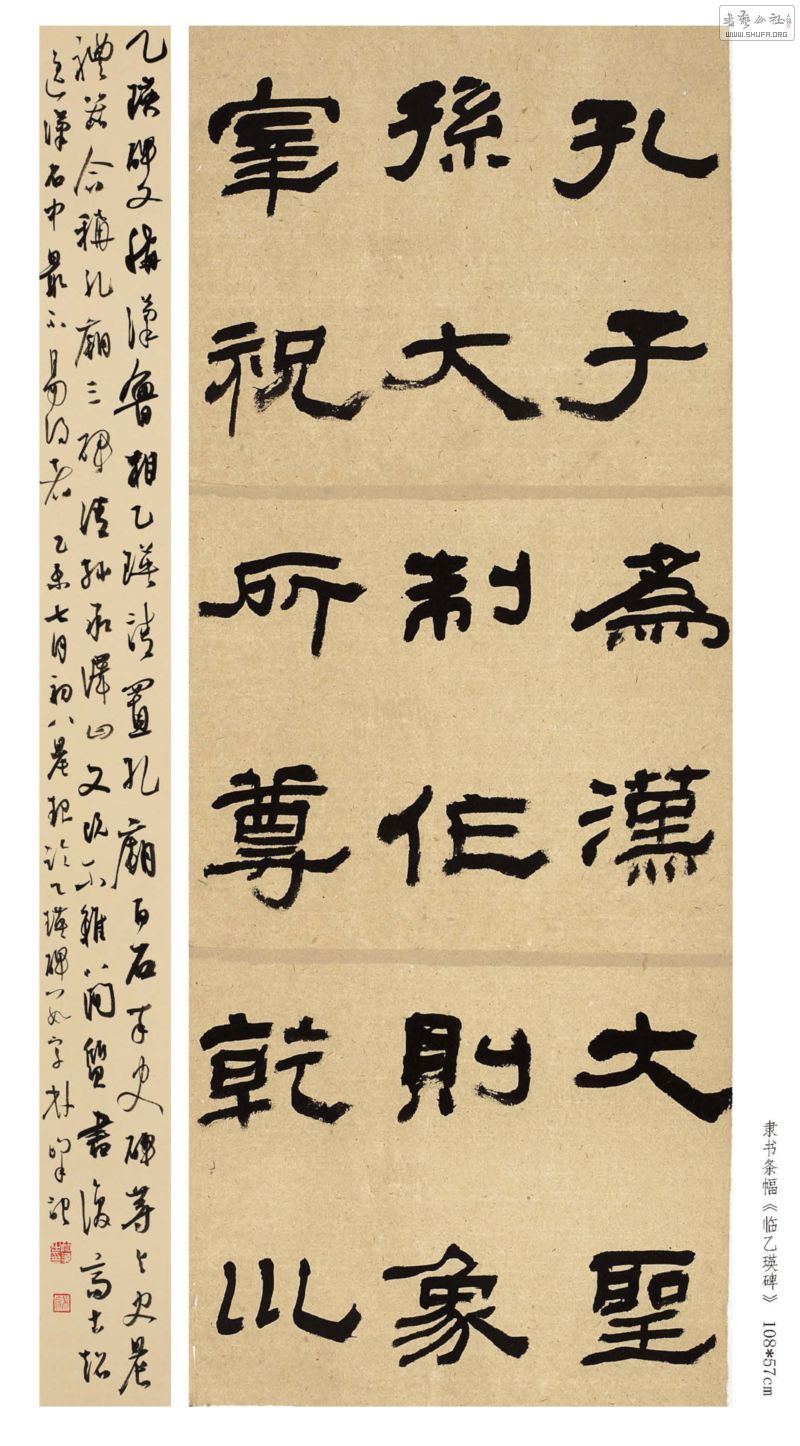 孔子為漢大聖
孫大制作則象
宰祝所尊乾川
乙瑛碑又稱漢魯相乙瑛請置孔廟百石卒史碑與史晨
禮器合稱孔廟三碑清孫承澤曰文既尔雅簡質書復高古超
逸漢石中最不易得者 乙未七月初八晨起臨乙瑛碑
隶书条幅《临乙瑛碑》 108*57cm
書藝公社
WWW.SHUFA.ORG